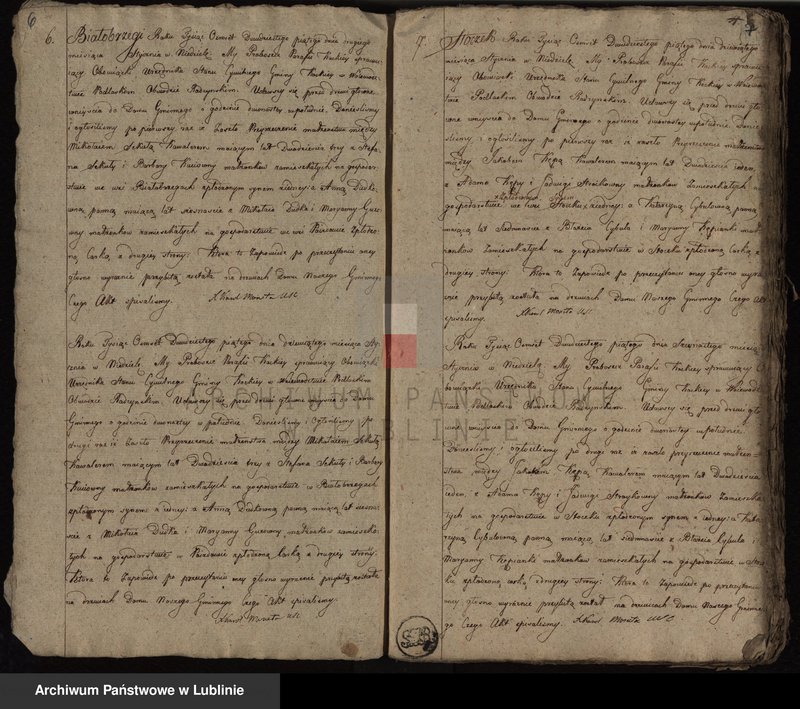 6
6. Białobrzegi Roku Tysiąc Ośmset Dwudziestego piątego dnia drugiego
miesiąca Stycznia w Niedzielę. My Proboszcz Parafii Kockiey sprawu-
iący Obowiązki Urzędnika Stanu Cywilnego Gminy Kockiey w Wojewodz-
twie Podlaskiem Obwodzie Radzyńskim. Udawszy się przed drzwi główne
wnijścia do Domu Gminnego o godzinie dwunastey w południe. Donieśliśmy
i ogłosiliśmy po pierwszy raz iż zaszło Przyrzeczenie małżeństwa między
Mikołaiem Sekułą Kawalerem maiącym lat Dwadzieścia trzy z Stefa-
na Sekuły i Barbary małżonków zamieszkałych na gospodar-
stwie we wsi Białobrzegach spłodzonym synem z iedney: a Anną Dudkó-
wną panną maiącą lat z Mikołaia Dudka i Maryanny
małżonków zamieszkałych na gospodarstwie we wsi spłodzo-
ną Córką z drugiey strony: Która to Zapowiedź po przeczytaniu oney
głośno wyraźnie przybitą została na drzwiach Domu Naszego Gminnego
Czego Akt spisaliśmy.
X Karol Moreta USC
Roku Tysiąc Ośmset Dwudziestego piątego dnia dziewiątego miesiąca Sty-
cznia w Niedzielę. My Proboszcz Parafii Kockiey sprawuiący Obowiązki
Urzędnika Stanu Cywilnego Gminy Kockiey w Województwie Podlaskiem
Obwodzie Radzyńskim. Udawszy się przed drzwi główne wnijścia do Domu
Gminnego o godzinie dwunastey w południe. Donieśliśmy i Ogłosiliśmy po
drugi raz iż zaszło Przyrzeczenie małżeństwa między Mikołaiem Sekułą
Kawalerem maiącym lat Dwadzieścia trzy z Stefana Sekuły i Barbary
małżonków zamieszkałych na gospodarstwie w Białobrzegach
spłodzonym synem z iedney: a Anną Dudkówną panną maiącą lat
z Mikołaia Dudka i Maryanny małżonków zamieszka-
łych na gospodarstwie w spłodzoną Córką z drugiey strony:
Która to Zapowiedź po przeczytaniu oney głośno wyraźnie przybitą została
na drzwiach Domu Naszego Gminnego Czego Akt spisaliśmy
X Karol Moreta USC
7
7. Stoczek Roku Tysiąc Ośmset Dwudziestego piątego dnia dziewiątego
miesiąca Stycznia w Niedzielę. My Proboszcz Parafii Kockiey sprawu-
iący Obowiązki Urzędnika Stanu Cywilnego Gminy Kockiey w Wojewódz-
twie Podlaskiem Obwodzie Radzyńskim. Udawszy się przed drzwi głó-
wne wnijścia do Domu Gminnego o godzinie dwunastey w południe. Donie-
śliśmy i ogłosiliśmy po pierwszy raz iż zaszło Przyrzeczenie małżeństwa
między Jakubem Kępą Kawalerem maiącym lat Dwadzieścia ieden
z Adama Kępy i Jadwigi małżonków Zamieszkałych na
spłodzonym Synem
gospodarstwie we wsi Stoczku z iedney: a Katarzyną Cybulówną panną
maiącą lat Siedmnaście z Błażeia Cybula i Maryanny Kępianki mał-
żonków Zamieszkałych na gospodarstwie w Stoczku spłodzoną Córką z
drugiey strony: Która to Zapowiedź po przeczytaniu oney głośno wyra-
źnie przybitą została na drzwiach Domu Naszego Gminnego Czego Akt
spisaliśmy.
X Karol Moreta USC
Roku Tysiąc Ośmset Dwudziestego piątego dnia Szesnastego miesiąca
Stycznia w Niedzielę. My Proboszcz Parafii Kockiey sprawuiący O-
bowiązki Urzędnika Stanu Cywilnego Gminy Kockiey w Wojewódz-
twie Podlaskiem Obwodzie Radzyńskim. Udawszy się przed drzwi głó-
wne wnijścia do Domu Gminnego o godzinie dwunastey w południe.
Donieśliśmy i ogłosiliśmy po drugi raz iż zaszło przyrzeczenie małżeń-
stwa między Jakubem Kępą Kawalerem maiącym lat Dwadzieścia
ieden z Adama Kępy i Jadwigi małżonków Zamieszka-
łych na gospodarstwie w Stoczku spłodzonym synem z iedney: a Kata-
rzyną Cybulówną panną maiącą lat siedmnaście z Błażeia Cybula i
Maryanny Kępianki małżonków zamieszkałych na gospodarstwie w Stocz-
ku spłodzoną córką z drugiey strony: Która to Zapowiedź po przeczytaniu
oney głośno wyraźnie przybitą została na drzwiach Domu Naszego Gminne-
go Czego Akt spisaliśmy. X Karol Moreta USC
ARCHIWUM PAŃSTWOWE
W LUBLINIE
Archiwum Państwowe w Lublinie